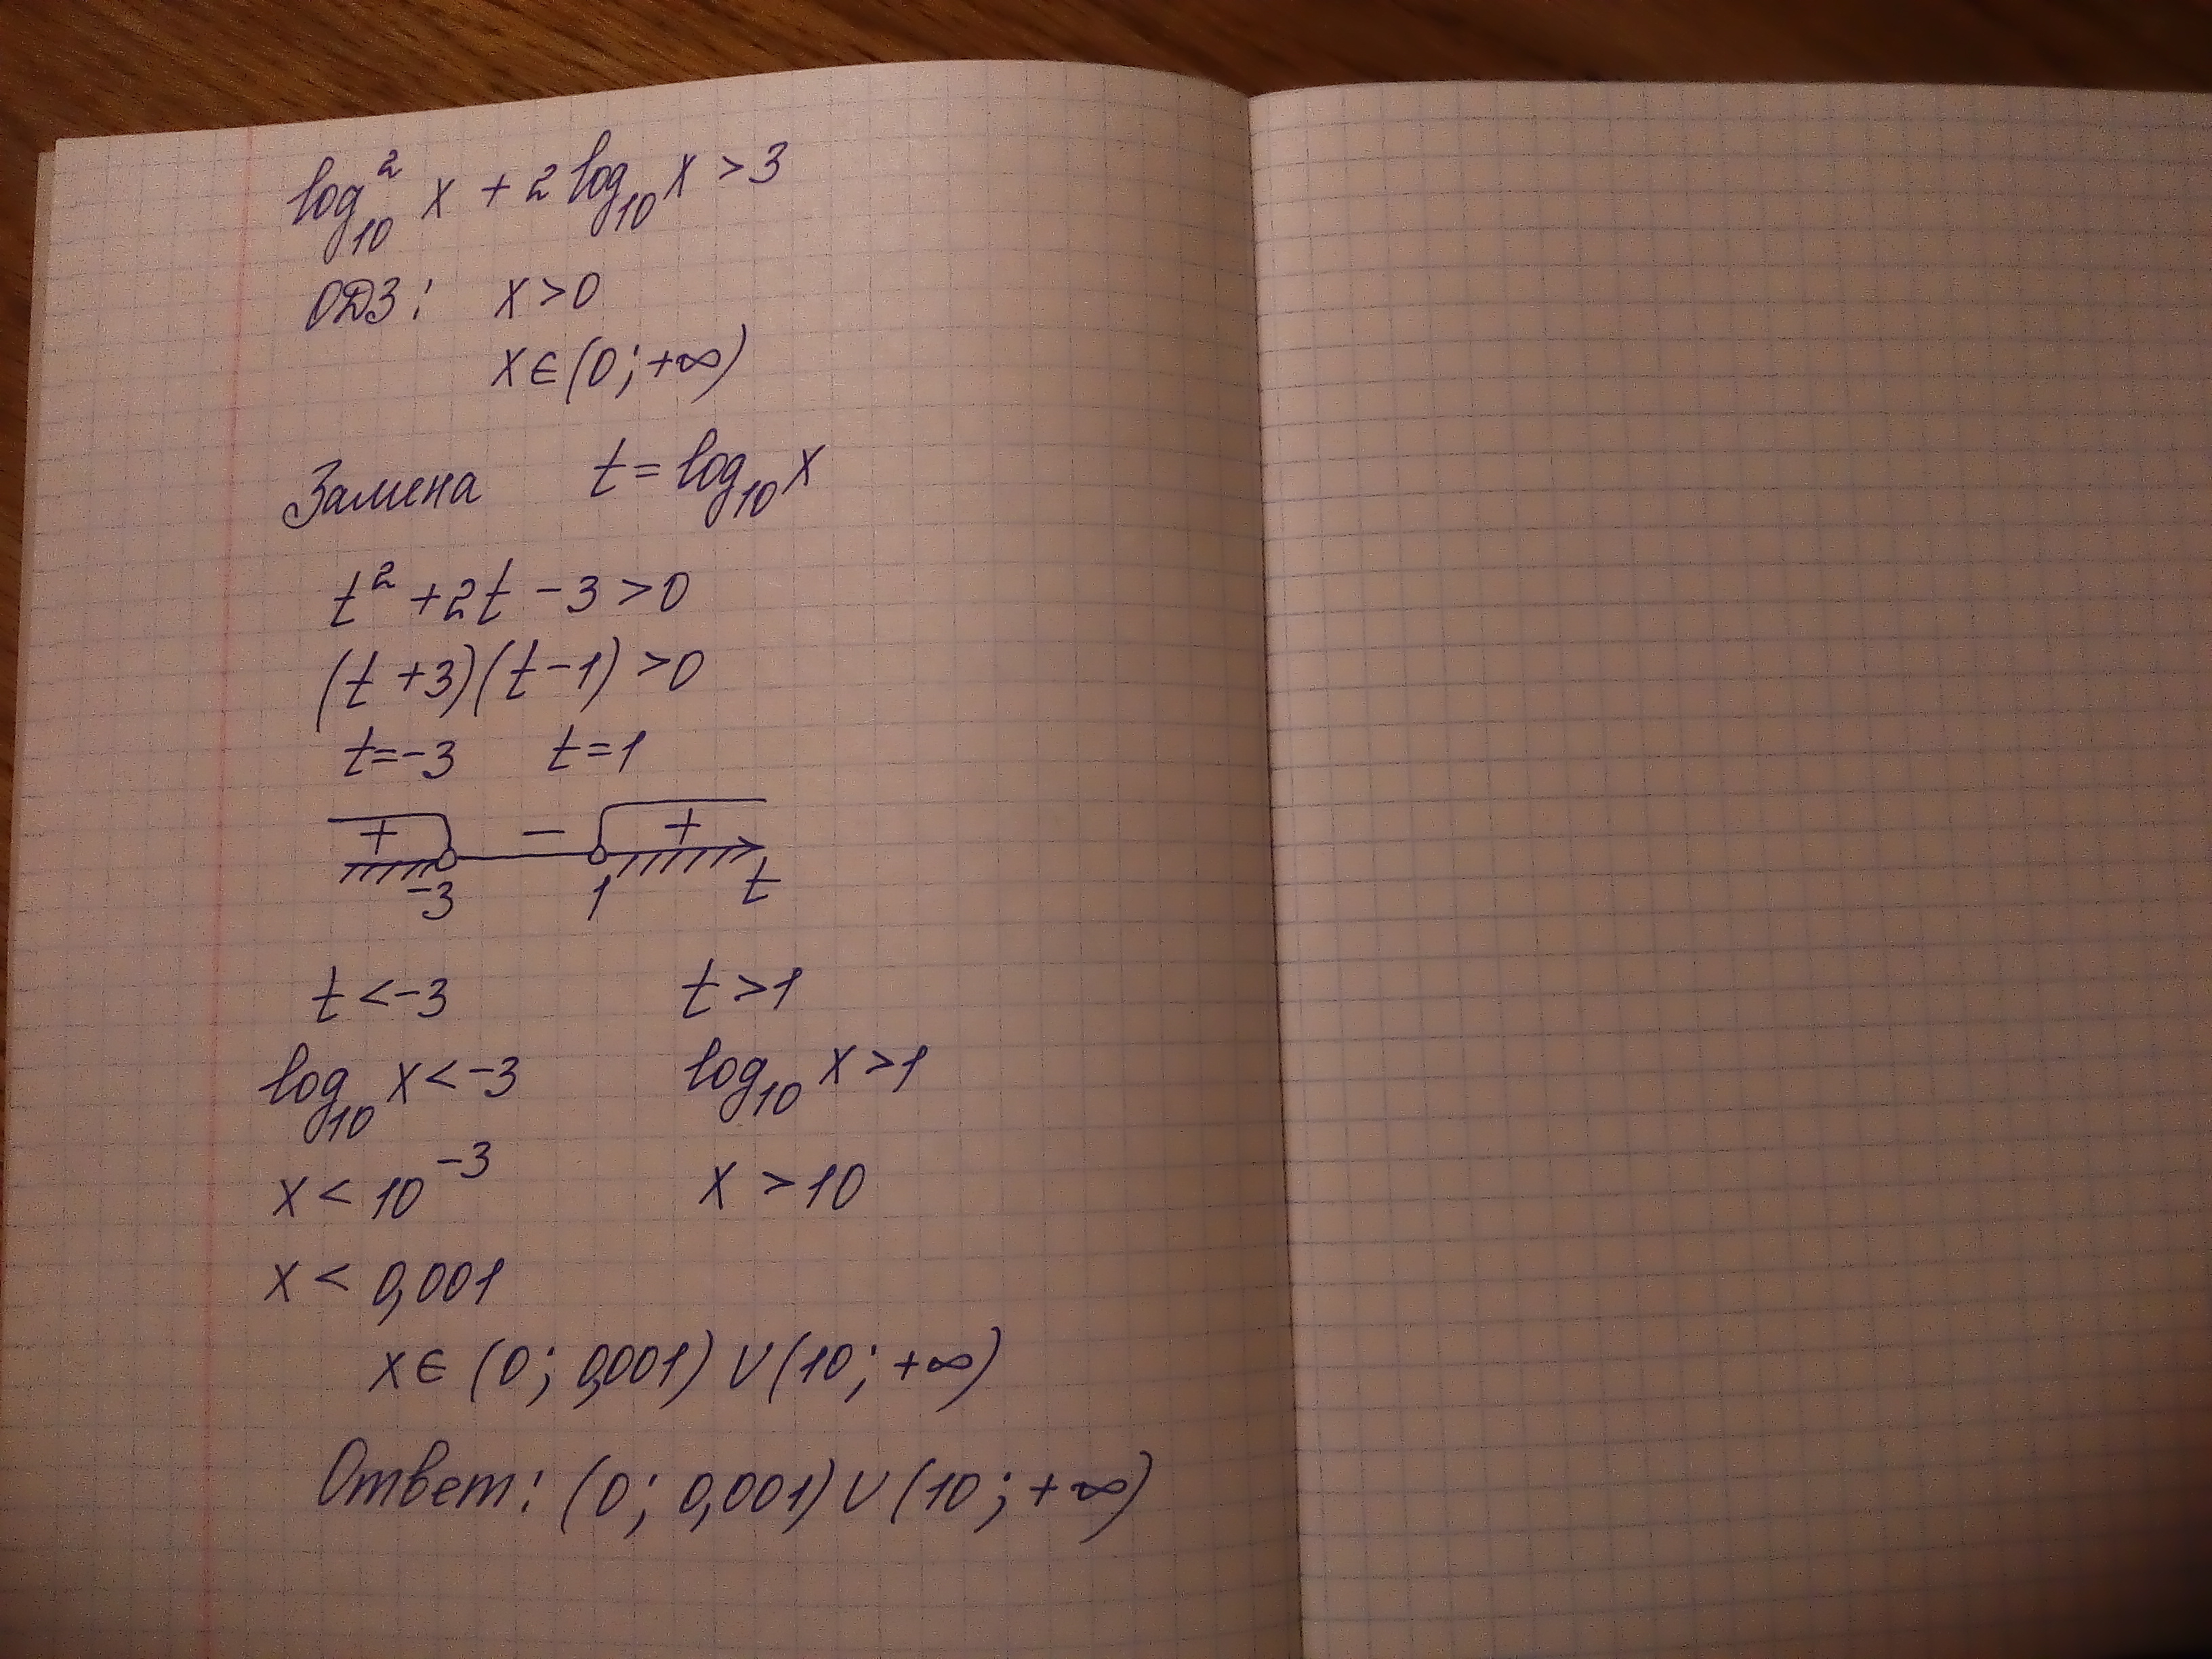 log₁₀² x + 2 log₁₀ x > 3
ОДЗ: x > 0
x ∈ (0; +∞)
Замена t = log₁₀ x
t² + 2t - 3 > 0
(t + 3)(t - 1) > 0
t = -3 t = 1
+ − +
-3 1 t
t < -3 t > 1
log₁₀ x < -3 log₁₀ x > 1
x < 10⁻³ x > 10
x < 0,001
x ∈ (0; 0,001) ∪ (10; +∞)
Ответ: (0; 0,001) ∪ (10; +∞)